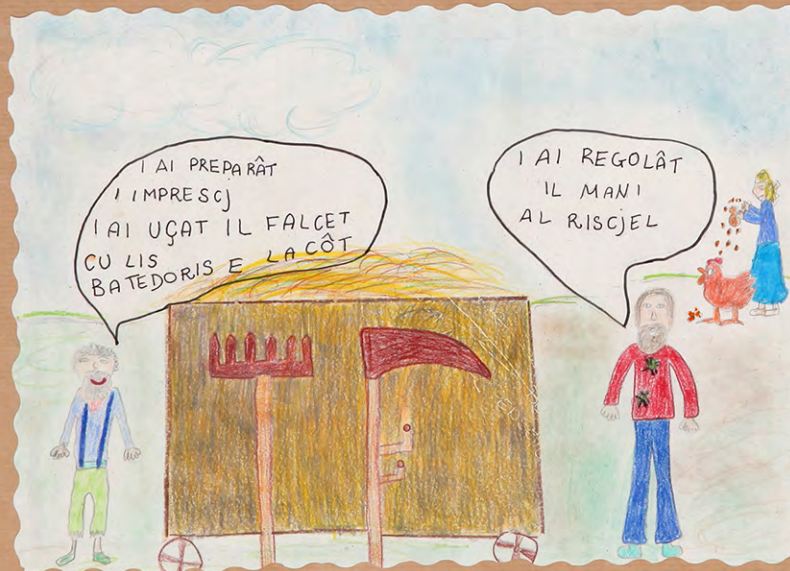 I AI PREPARÂT
I IMPRESCJ
I AI UÇAT IL FALCET
CU LIS
BATEDORIS E LA CÔT
I AI REGOLÂT
IL MANI
AL RISCJEL